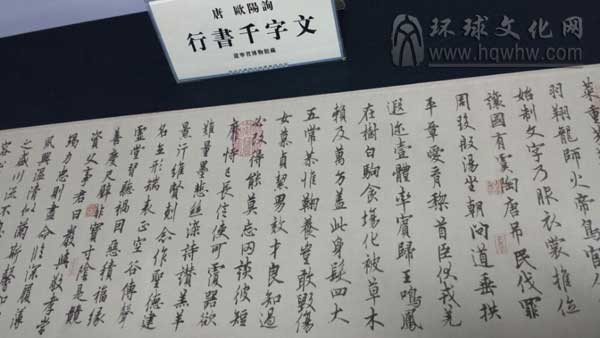 唐 歐陽詢
行書千字文
遼寧省博物館藏
环球文化网
www.hqwhw.com
菜重
羽翔龍師火帝鳥官
始制文字乃服衣裳推位
讓國有虞陶唐弔民伐罪
周發殷湯坐朝問道垂拱
平章愛育黎首臣伏戎羌
遐迩壹體率賓歸王鳴鳳
在樹白駒食場化被草木
賴及萬方盖此身髮四大
五常恭惟鞠養豈敢毀傷
女慕貞絜男效才良知過
必改得能莫忘罔談彼短
靡恃己長信使可覆器欲
難量墨悲絲染詩讃羔羊
景行維賢剋念作聖德建
名立形端表正空谷傳聲
虚堂習聽禍因惡積福緣
善慶尺璧非寶寸陰是競
資父事君曰嚴與敬孝當
竭力忠則盡命臨深履薄
夙興温清似蘭斯馨如
之盛川流不